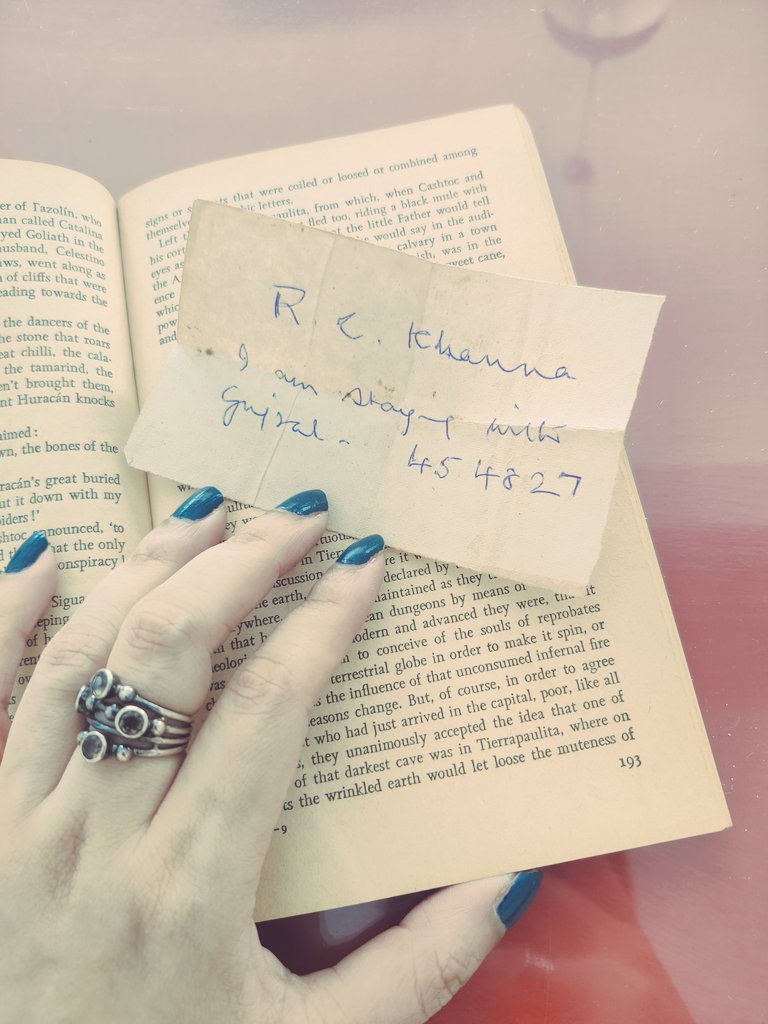 er of Tazolín, who
an called Catalina
yed Goliath in the
usband, Celestino
ws, went along as
n of cliffs that were
eading towards the
the dancers of the
he stone that roars
eat chilli, the cala-
the tamarind, the
n't brought them,
nt Huracán knocks
imed:
wn, the bones of the
racán's great buried
ut it down with my
piders!'
shtoc announced, 'to
at the only
onspiracy!
Sigua
eping
of h
signs or that were coiled or loosed or combined among
themselv letters.
Left ulita, from which, when Cashtoc and
his cor fled too, riding a black mule with
eyes as t the little Father would tell
the A would say in the audi-
ence calvary in a town
whic ish, was in the
pow weet cane,
and
R. C. Khanna
I am staying with
Gujral - 454827
wi
ulit
ey we tuou
in Tier re it w
iscussion declared by
he earth, maintained as they
ywhere. ean dungeons by means of
that h odern and advanced they were, that it
eologi to conceive of the souls of reprobates
was terrestrial globe in order to make it spin, or
s the influence of that unconsumed infernal fire
easons change. But, of course, in order to agree
t who had just arrived in the capital, poor, like all
s, they unanimously accepted the idea that one of
of that darkest cave was in Tierrapaulita, where on
ks the wrinkled earth would let loose the muteness of
193
-9